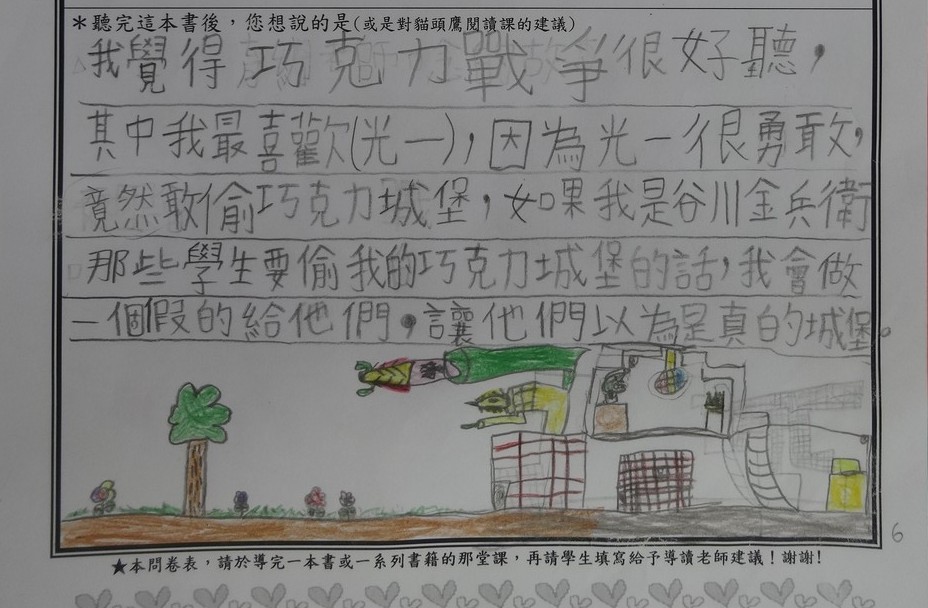 ＊聽完這本書後，您想說的是(或是對貓頭鷹閱讀課的建議)
我覺得巧克力戰爭很好聽，
其中我最喜歡(光一)，因為光一很勇敢，
竟然敢偷巧克力城堡，如果我是谷川金兵衛
那些學生要偷我的巧克力城堡的話，我會做
一個假的給他們，讓他們以為是真的城堡。
6
★本問卷表，請於導完一本書或一系列書籍的那堂課，再請學生填寫給予導讀老師建議！謝謝！